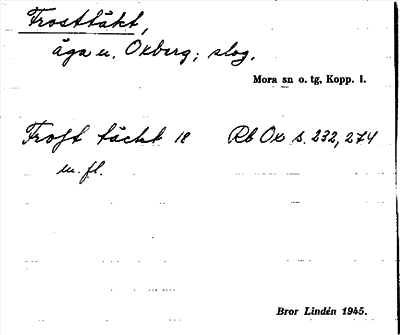 Frosttäkt,
äga u. Oxberg; slog.
Mora sn o. tg, Kopp. l.
Froft täckt 18 Rb Ox s. 232, 274
m. fl.
Bror Lindén 1945.